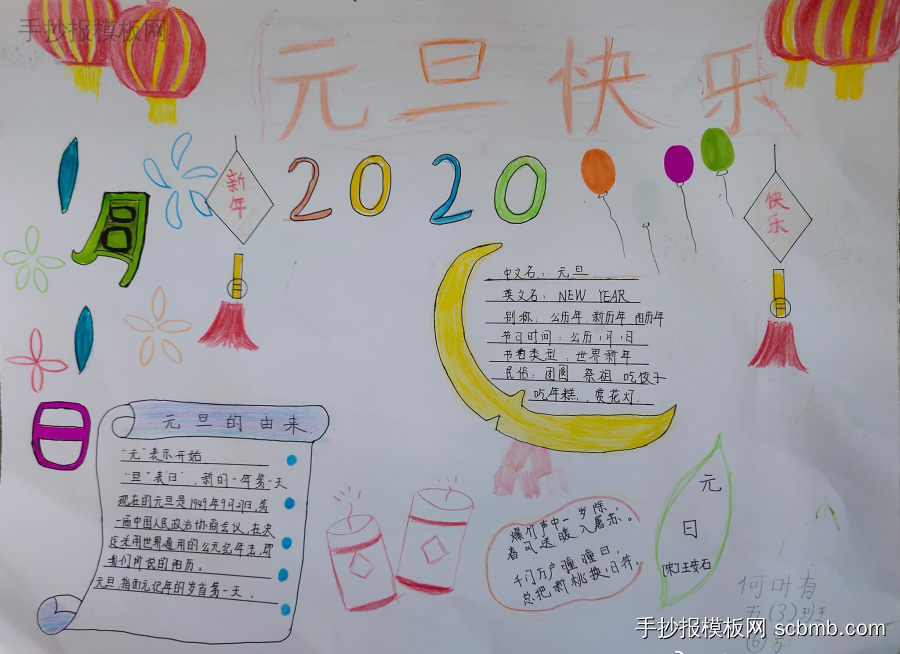 手抄报模板网
元旦快乐
2020
新年
快乐
1月
1日
中文名：元旦
英文名：NEW YEAR
别称：公历年 新历年 阳历年
节日时间：公历1月1日
节日类型：世界新年
民俗：团圆 祭祖 吃饺子
吃年糕 赏花灯
元旦的由来
"元"表示开始
"旦"表"日"，新的一年第一天
现在的元旦是1949年9月27日，第
一届中国人民政治协商会议，在决
定采用世界通用的公元纪年法，即
我们所说的阳历。
元旦，指公元纪年的岁首第一天。
爆竹声中一岁除，
春风送暖入屠苏。
千门万户曈曈日，
总把新桃换旧符。
元
日
[宋]王安石
何叶有
五(3)班
手抄报模板网 scbmb.com